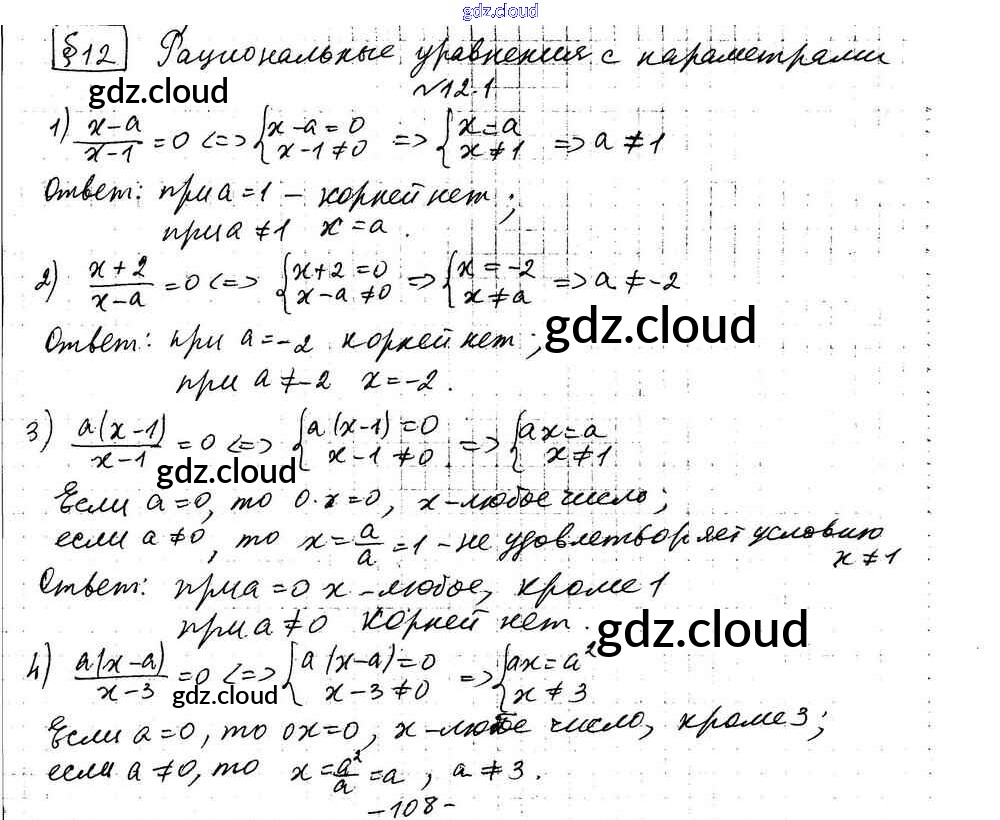 gdz.cloud
§12 Рациональные уравнения с параметрами
gdz.cloud
№12.1
1) (x-a)/(x-1) = 0 <=> {x-a=0; x-1≠0 => {x=a; x≠1 => a≠1
Ответ: при a=1 – корней нет;
при a≠1 x=a.
2) (x+2)/(x-a) = 0 <=> {x+2=0; x-a≠0 => {x=-2; x≠a => a≠-2
gdz.cloud
Ответ: при a=-2 корней нет;
при a≠-2 x=-2.
3) a(x-1)/(x-1) = 0 <=> {a(x-1)=0; x-1≠0 => {ax=a; x≠1
gdz.cloud
Если a=0, то 0·x=0, x-любое число;
если a≠0, то x=a/a=1 – не удовлетворяет условию
x≠1
Ответ: при a=0 x-любое, кроме 1
при a≠0 корней нет.
gdz.cloud
4) a(x-a)/(x-3) = 0 <=> {a(x-a)=0; x-3≠0 => {ax=a²; x≠3
gdz.cloud
Если a=0, то 0x=0, x-любое число, кроме 3;
если a≠0, то x=a²/a=a, a≠3.
-108-